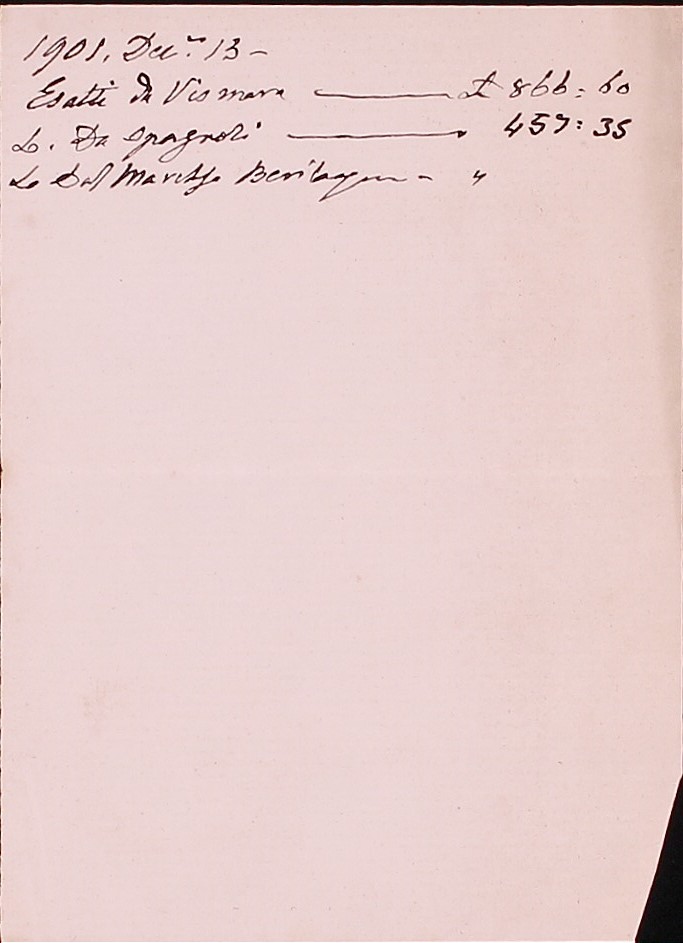 1901. Dec.re 13 -
Esatti da Vismara ——— £ 866 : 60
L. Da Spagnoli ——— " 457 : 35
L. Dal "